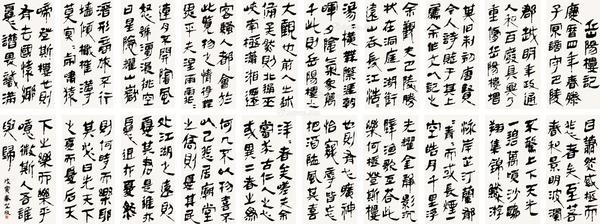 岳陽樓記
慶曆四年春滕
子京謫守巴陵
郡越明年政通
人和百廢具興乃
重修岳陽樓增
其舊制刻唐賢
今人詩賦于其上
屬余作文以記之
余觀夫巴陵勝
狀在洞庭一湖銜
遠山吞長江浩浩
湯湯橫無際涯朝
暉夕陰氣象萬
千此則岳陽樓之
大觀也前人之述
備矣然則北通巫
峽南極瀟湘遷
客騷人都會於
此覽物之情得無
異乎若夫霪雨霏霏
連月不開陰風
怒號濁浪排空
日星隱耀山岳
潛形商旅不行
檣傾楫摧薄
暮冥冥虎嘯猿
啼登斯樓也則
有去國懷鄉
憂讒畏譏滿
目蕭然感極而
悲者矣至若
春和景明波瀾
不驚上下天光
一碧萬頃沙鷗
翔集錦鱗游
泳岸芷汀蘭郁郁
青青而或長煙
一空皓月千里浮
光耀金靜影沉
璧漁歌互答此
樂何極登斯樓
也則有心曠神
怡寵辱偕忘
把酒臨風其喜
洋洋者矣嗟夫余
嘗求古仁人之心
或異二者之為
何哉不以物喜不
以己悲居廟堂
之高則憂其民
處江湖之遠則
憂其君是進亦
憂退亦憂然
則何時而樂耶
其必曰先天下
之憂而憂後天
下之樂而樂乎
噫微斯人吾誰
與歸